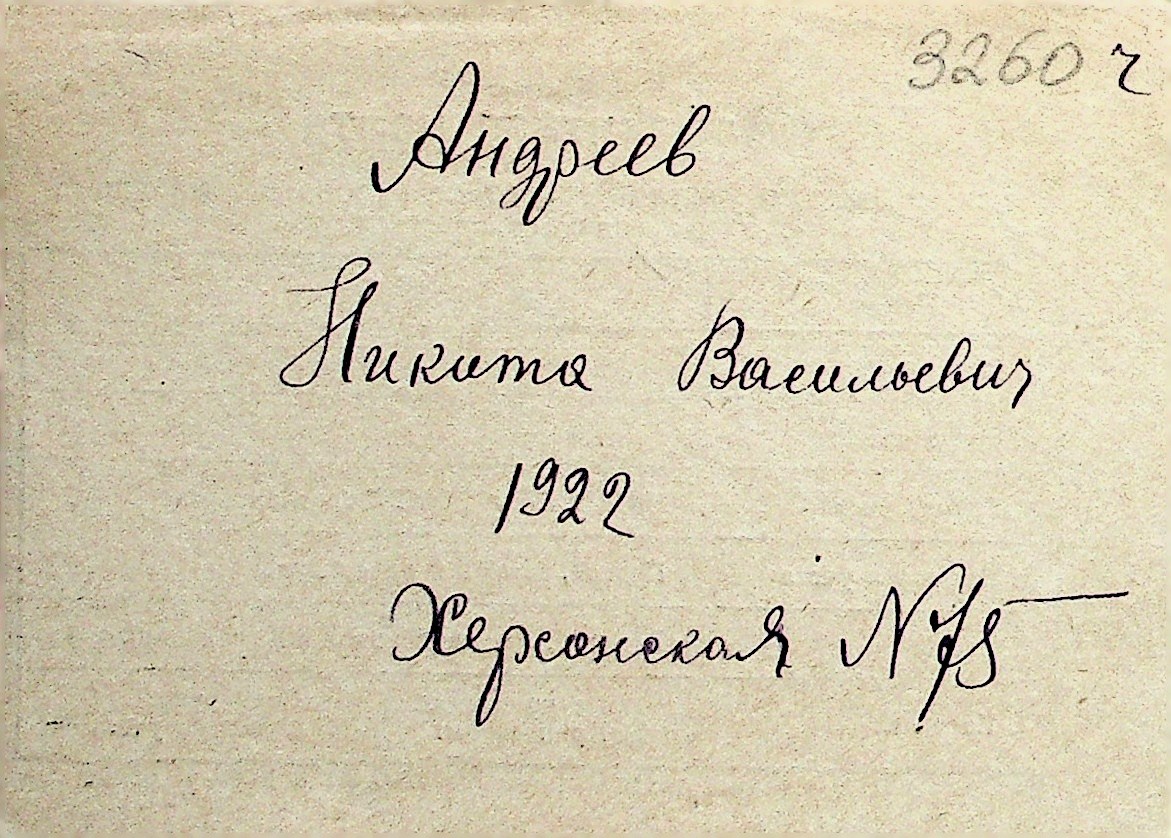 3260 ч
Андреев
Никита Васильевич
1922
Херсонская N 75